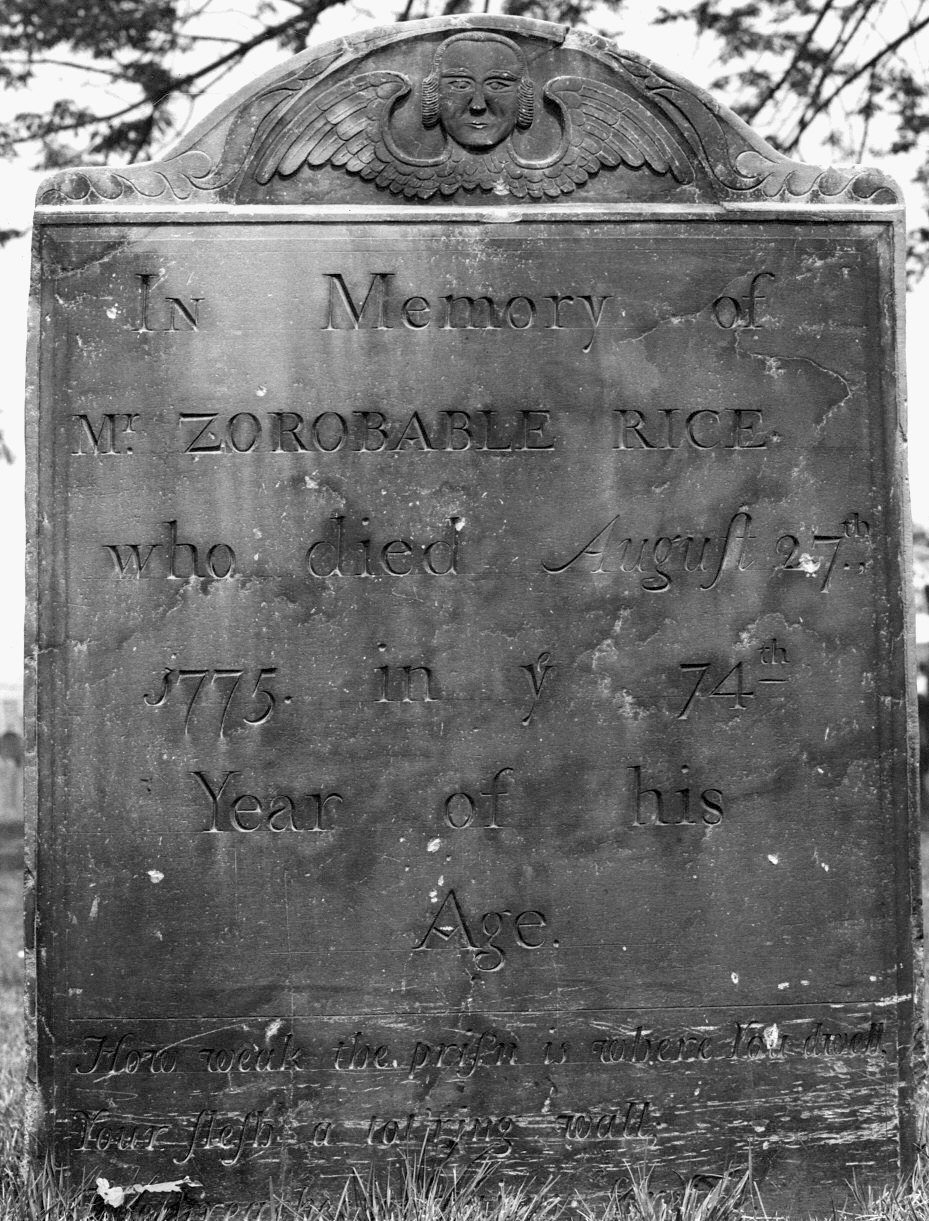 In Memory of
Mr. ZOROBABLE RICE.
who died Auguſt 27.th,
1775. in yͤ 74th
Year of his
Age.
How weak the priſn is where You dwell,
Your fleſh a tott'ring wall,